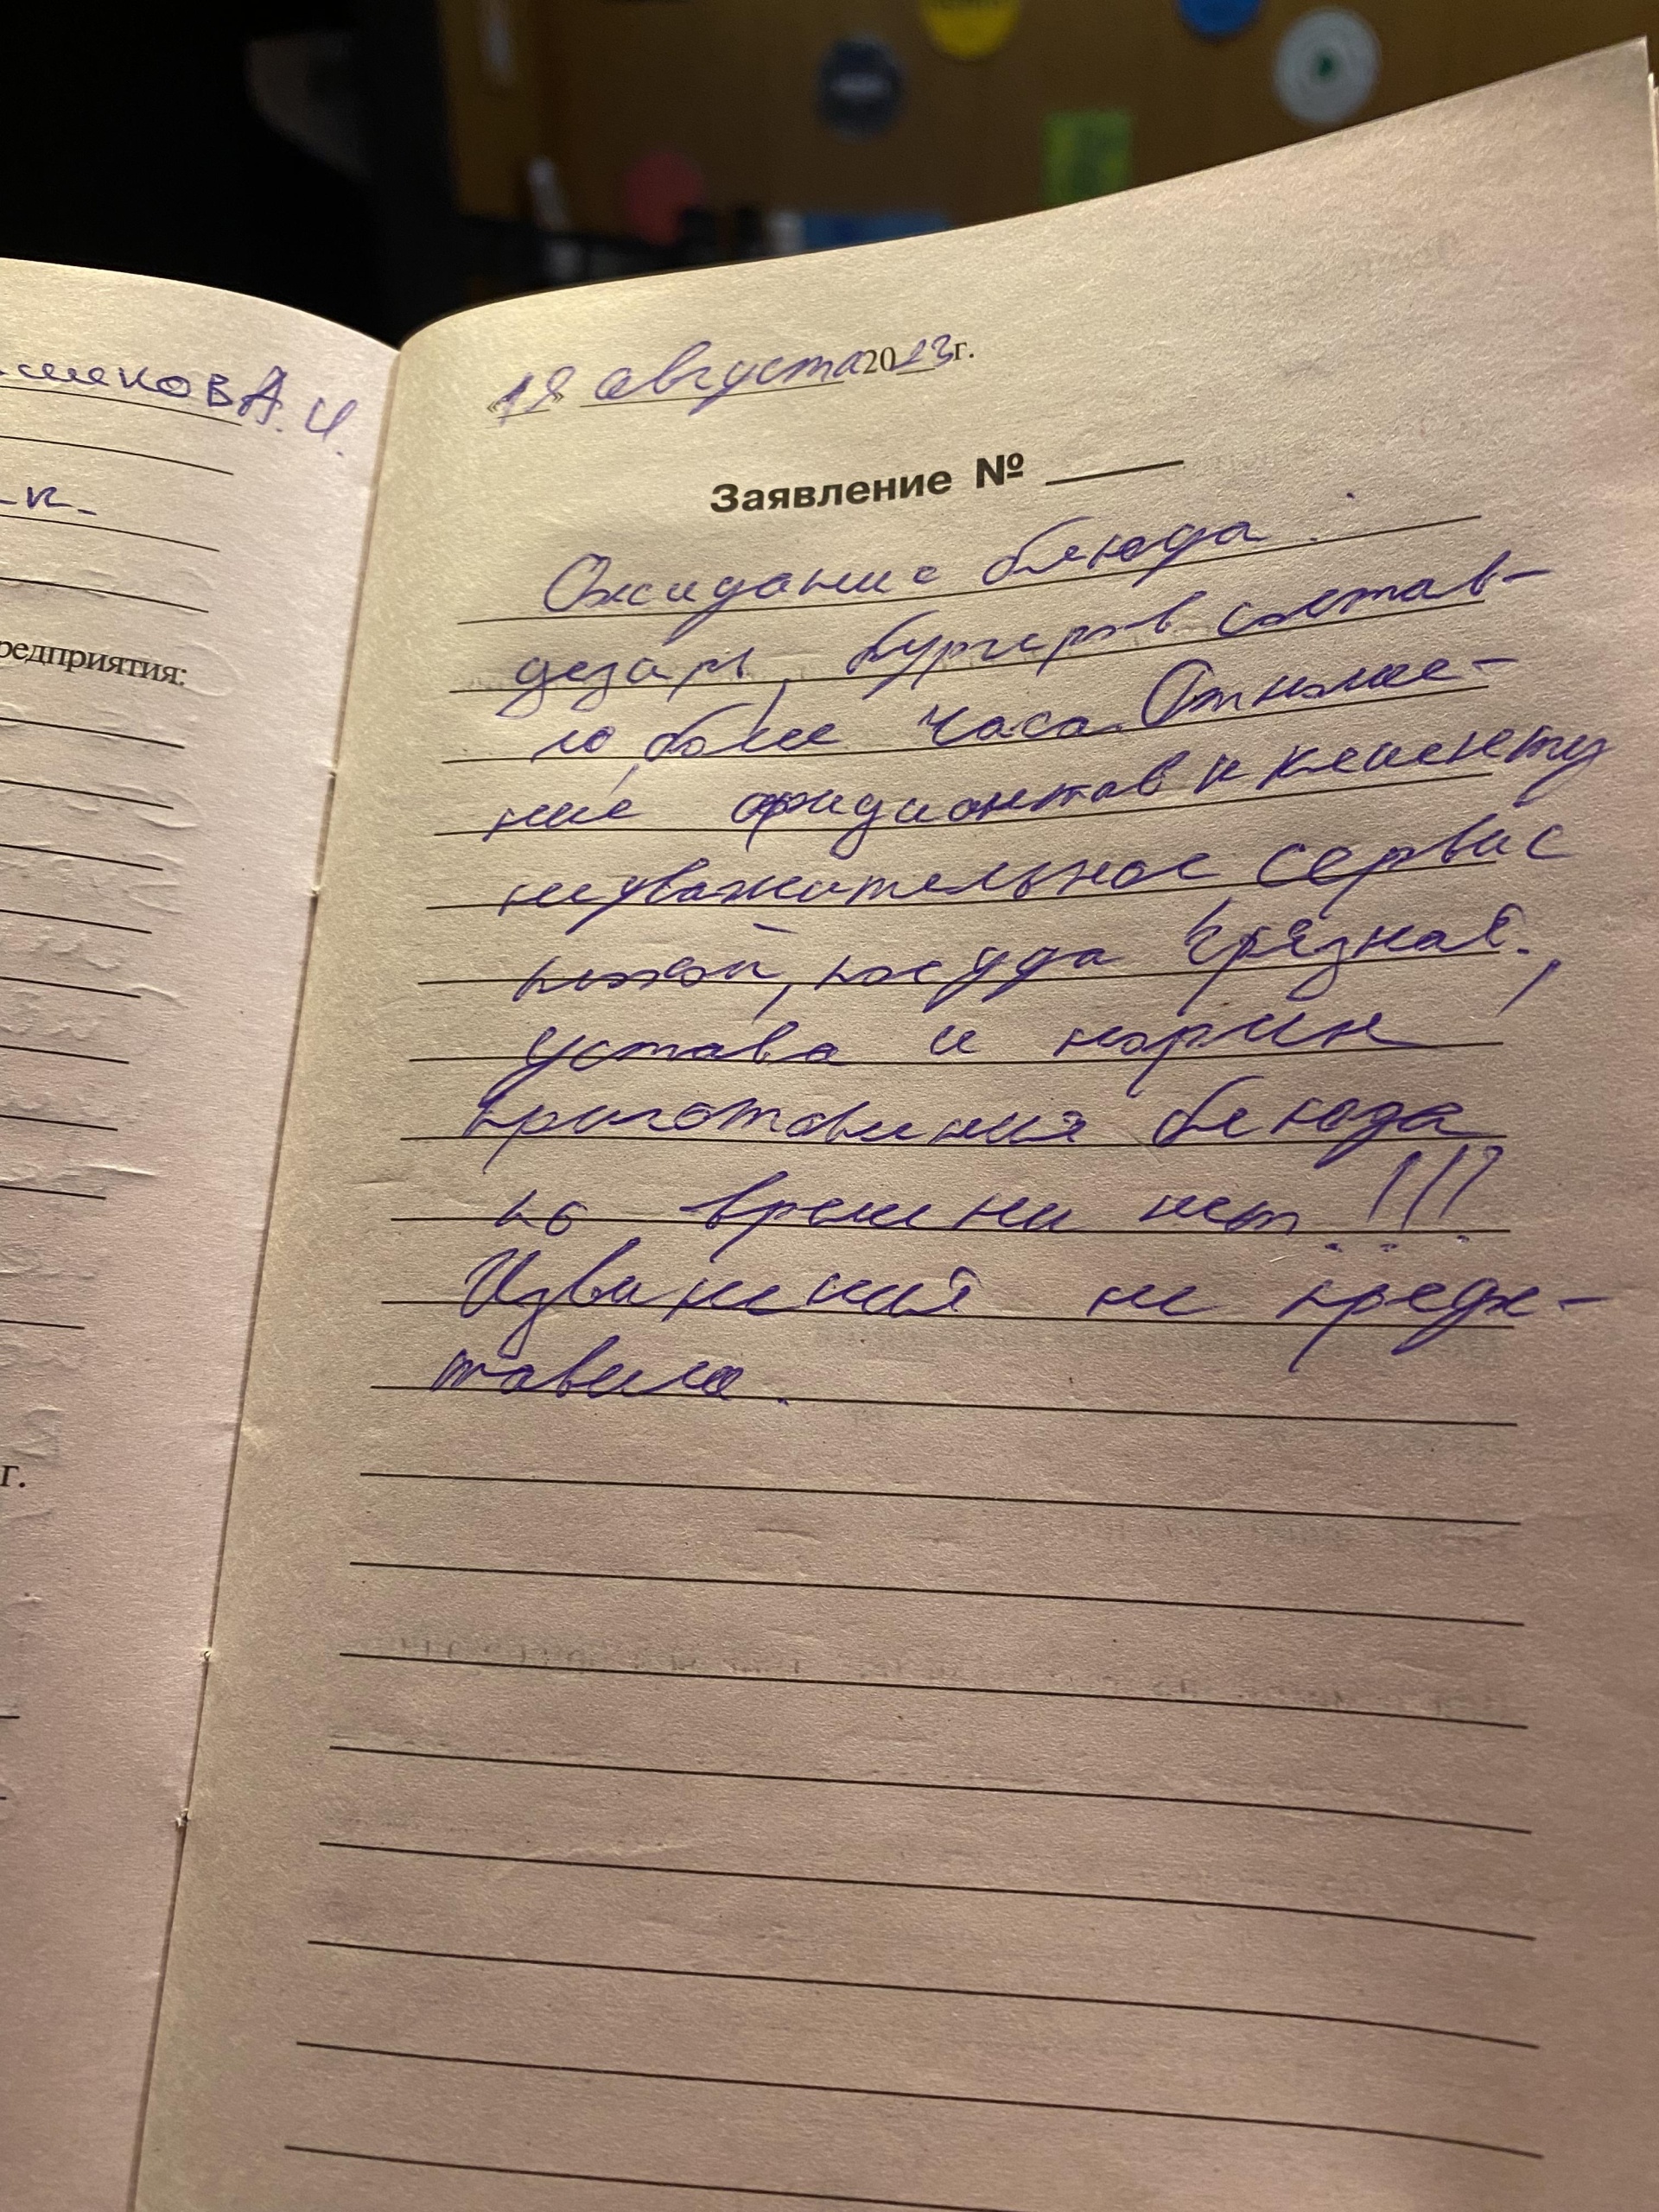 А.И.
редприятия:
г.
« » августа 2013г.
Заявление №
Ожидание блюда:
цезарь, бургеров состав-
ло более часа. Отноше-
ние официантов к клиенту
неуважительное сервис
плохой, посуда грязная.,
устава и норм
приготовления блюда
по времени нет!!!
Извинения не предс-
тавило.